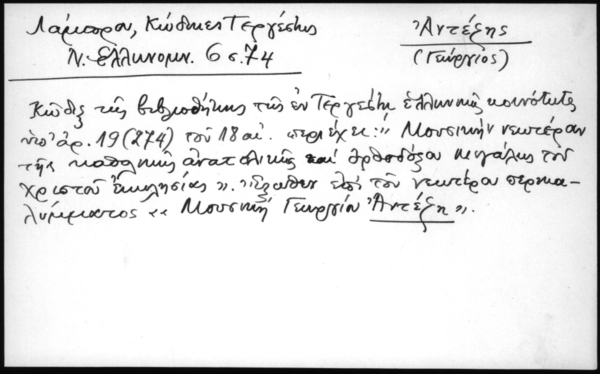 Λάμπρου, Κώδικες Τεργέστης
Ν. Ελληνομν. 6 σ. 74
Ἀντέξης
(Γεώργιος)
Κῶδιξ τῆς βιβλιοθήκης τῆς ἐν Τεργέστῃ ἑλληνικῆς κοινότητος
ὑπ' ἀρ. 19 (274) τοῦ 18 αἰ. περιέχει: "Μουσικὴν νεωτέραν
τῆς καθολικῆς ἀνατολικῆς καὶ ὀρθοδόξου μεγάλης τοῦ
Χριστοῦ ἐκκλησίας". Ἔξωθεν ἐπὶ τοῦ νεωτέρου περικα-
λύμματος "Μουσικὴ Γεωργίου Ἀντέξη".